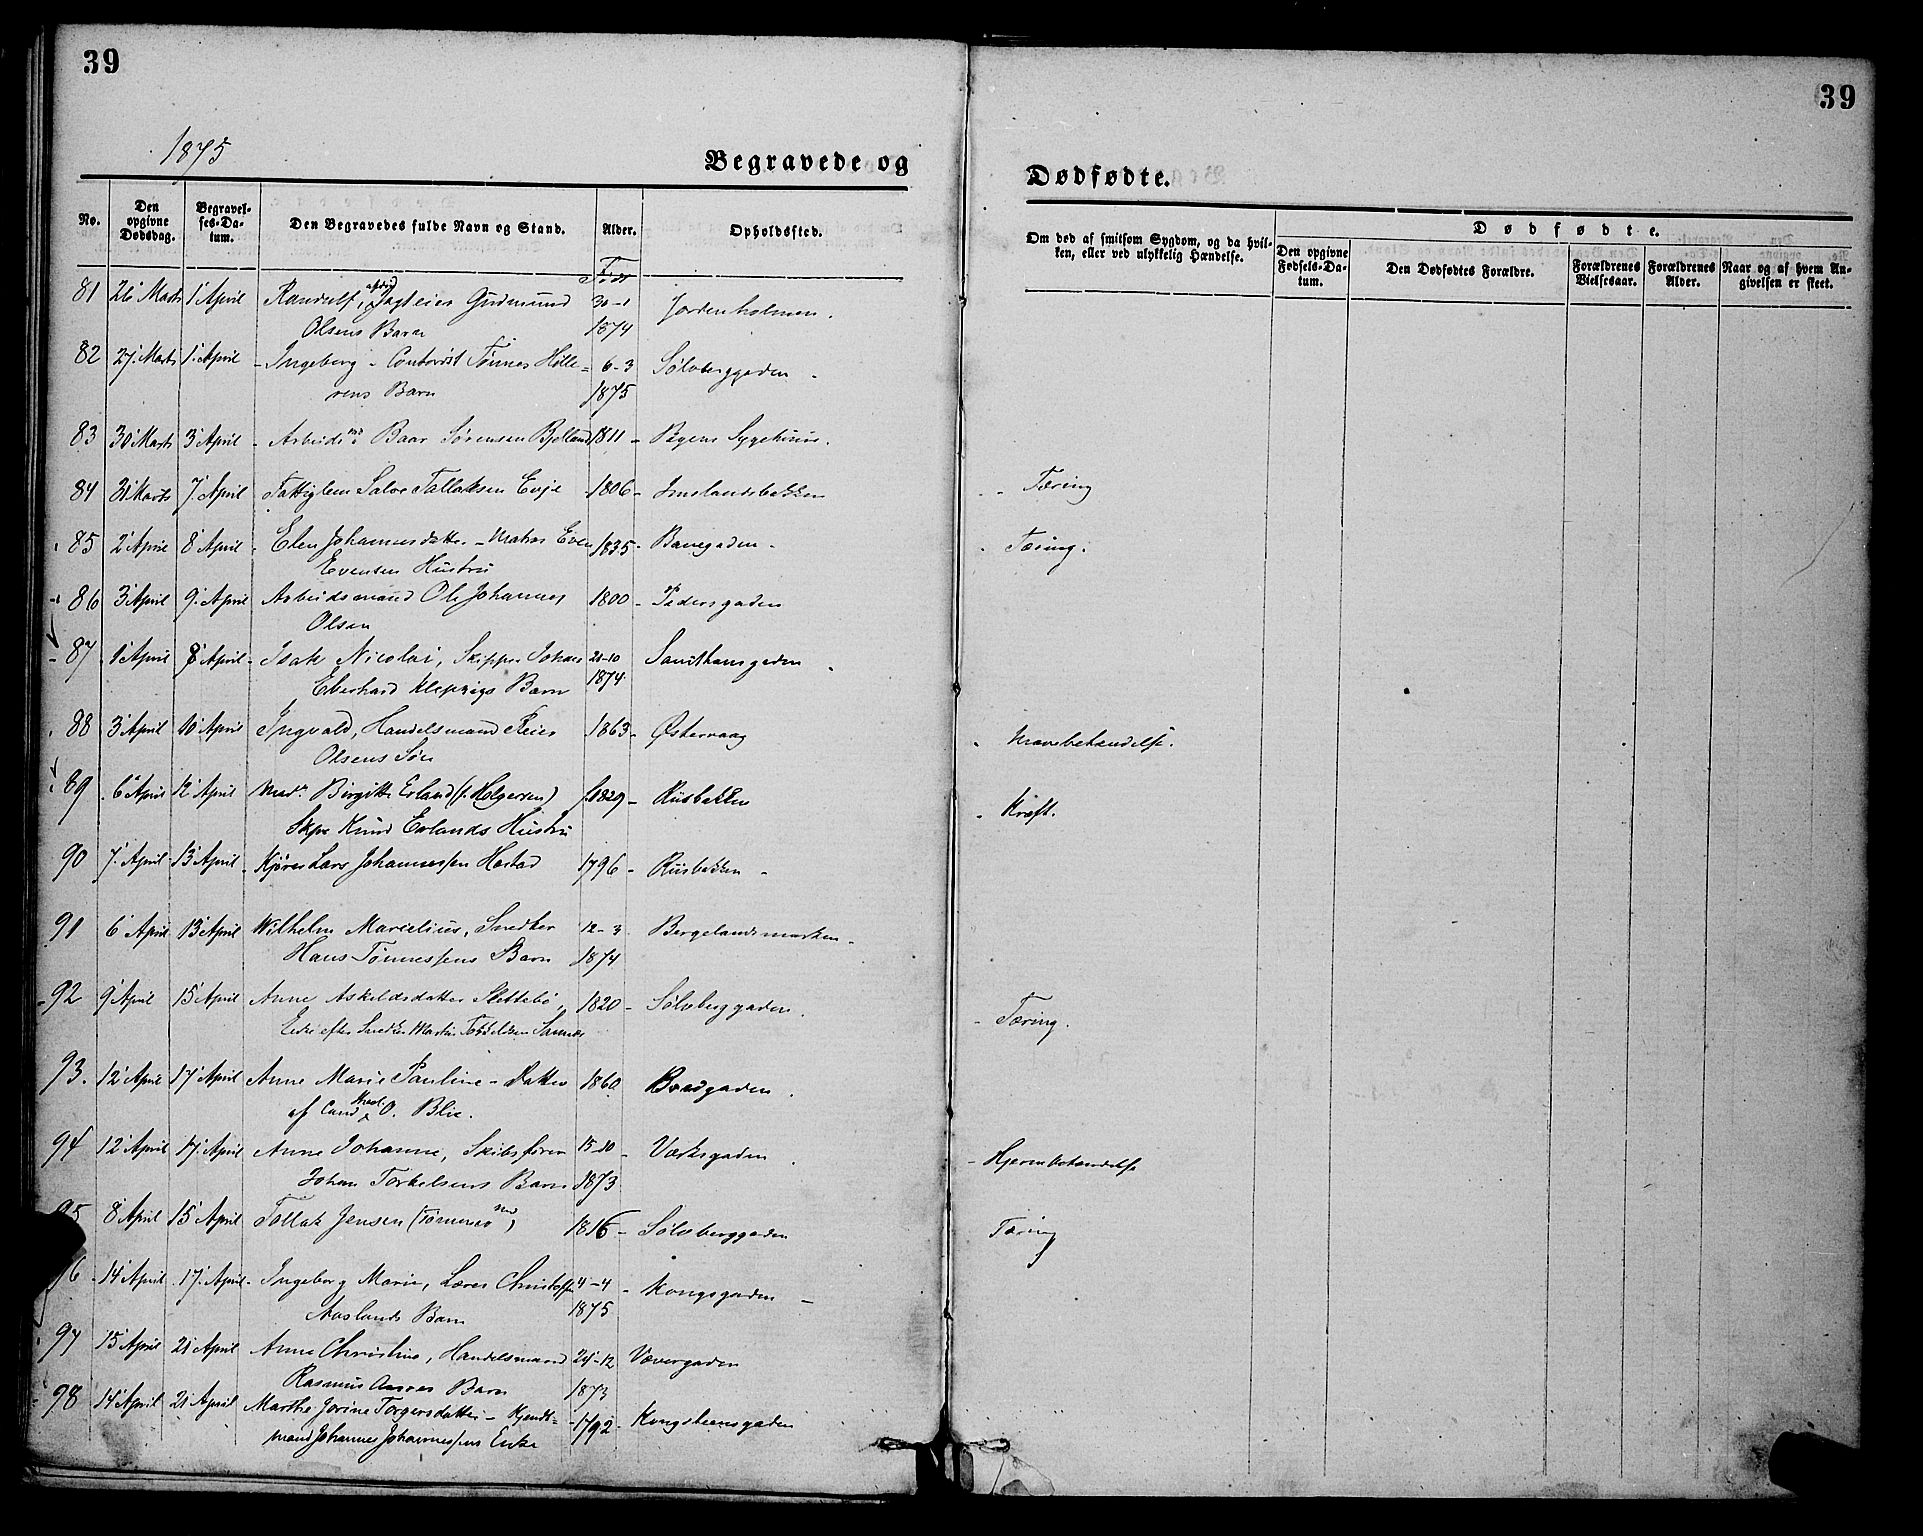 39
1875
Begravede og
No.
Den opgivne Dødsdag.
Begravelses-Datum.
Den Begravedes fulde Navn og Stand.
Alder.
Opholdssted.
Født
81 26 Marts 1 April Randulf, Jagteier Gudmund 30-1 Jordenholmen.
Olsens Barn 1874
82 27. Marts 1. April - Ingeborg - Tønnes Hille= 6-3 Sølvberggaden -
rens Barn 1875
83 30 Marts 3 April - Arbeidsmd Baar Sørensen Bjelland 1811 - Byens Sygehuus.
84 31 Marts 7 April - Fattiglem Salve Tallaksen Evje - 1806 - Imslandsbakken
85 2 April 8 April - Elen Johannesdatter - Matros Even 1835 - Banegaden -
Evensen Hustru
86 3 April 9. April Arbeidsmand Ole Johannes 1800 - Pedersgaden
Olsen
87 1 April 8 April - Isak Nicolai, Skipper Johan 21-10 Sancthansgaden
Eberhard Barn 1874
88 3 April 10 April Ingvald, Handelsmand Peier 1863 - Østervaag
Olsens Søn
89 6 April 12 April Mad. Birgitte Erland (f. Holgersen) f. 1829 - Riisbakken
Skpr Knud Erlands Hustru
90 7. April 13 April - Kjører Lars Johannessen Hastad 1796 - Riisbakken -
91 6 April 13 April Wilhelm Marselius, Snedker 12-3 Bergelandsmarken -
Hans Tønnessens Barn - 1874
92 9 April 15 April Anne Askeldsdatter Slettebø, 1820 - Sølvberggaden.
Enke efter Snedker Martin Torkelsen Sannes
93. 12 April 17 April Anne Marie Pauline - Datter 1860 Bredgaden.
af Cand. Med. O. Blie.
94 12 April 17. April Anne Johanne, Skibsfører 15-10 - Værksgaden
Johan Torkelsens Barn 1873
95 8 April 15 April Tollak Jensen 1816 - Sølvberggaden
96 14 April 17. April - Ingeborg Marie, Lærer Christoffer 4-4 - Kongsgaden -
Aaslands Barn 1875
97 15 April 21 April Anne Christine, Handelsmand 24-12 Vævergaden
Rasmus Barn 1873
98 14 April 21 April Marthe Jorine Torgersdatter - - 1792 - Kongsteensgaden
mand Johannes Johannessens Enke
39
Dødfødte.
Om død af smitsom Sygdom, og da hvil-
ken, eller ved ulykkelig Hændelse.
Dødfødte.
Den opgivne Fødsels-Datum.
Den Dødfødtes Forældre.
Forældrenes Vielsesaar.
Forældrenes Alder.
Naar og af hvem An-
givelsen er skeet.
- - Tæring
- Tæring.
- Mavebetændelse.
- Kræft.
- Tæring.
- Hjernebetændelse
Tæring